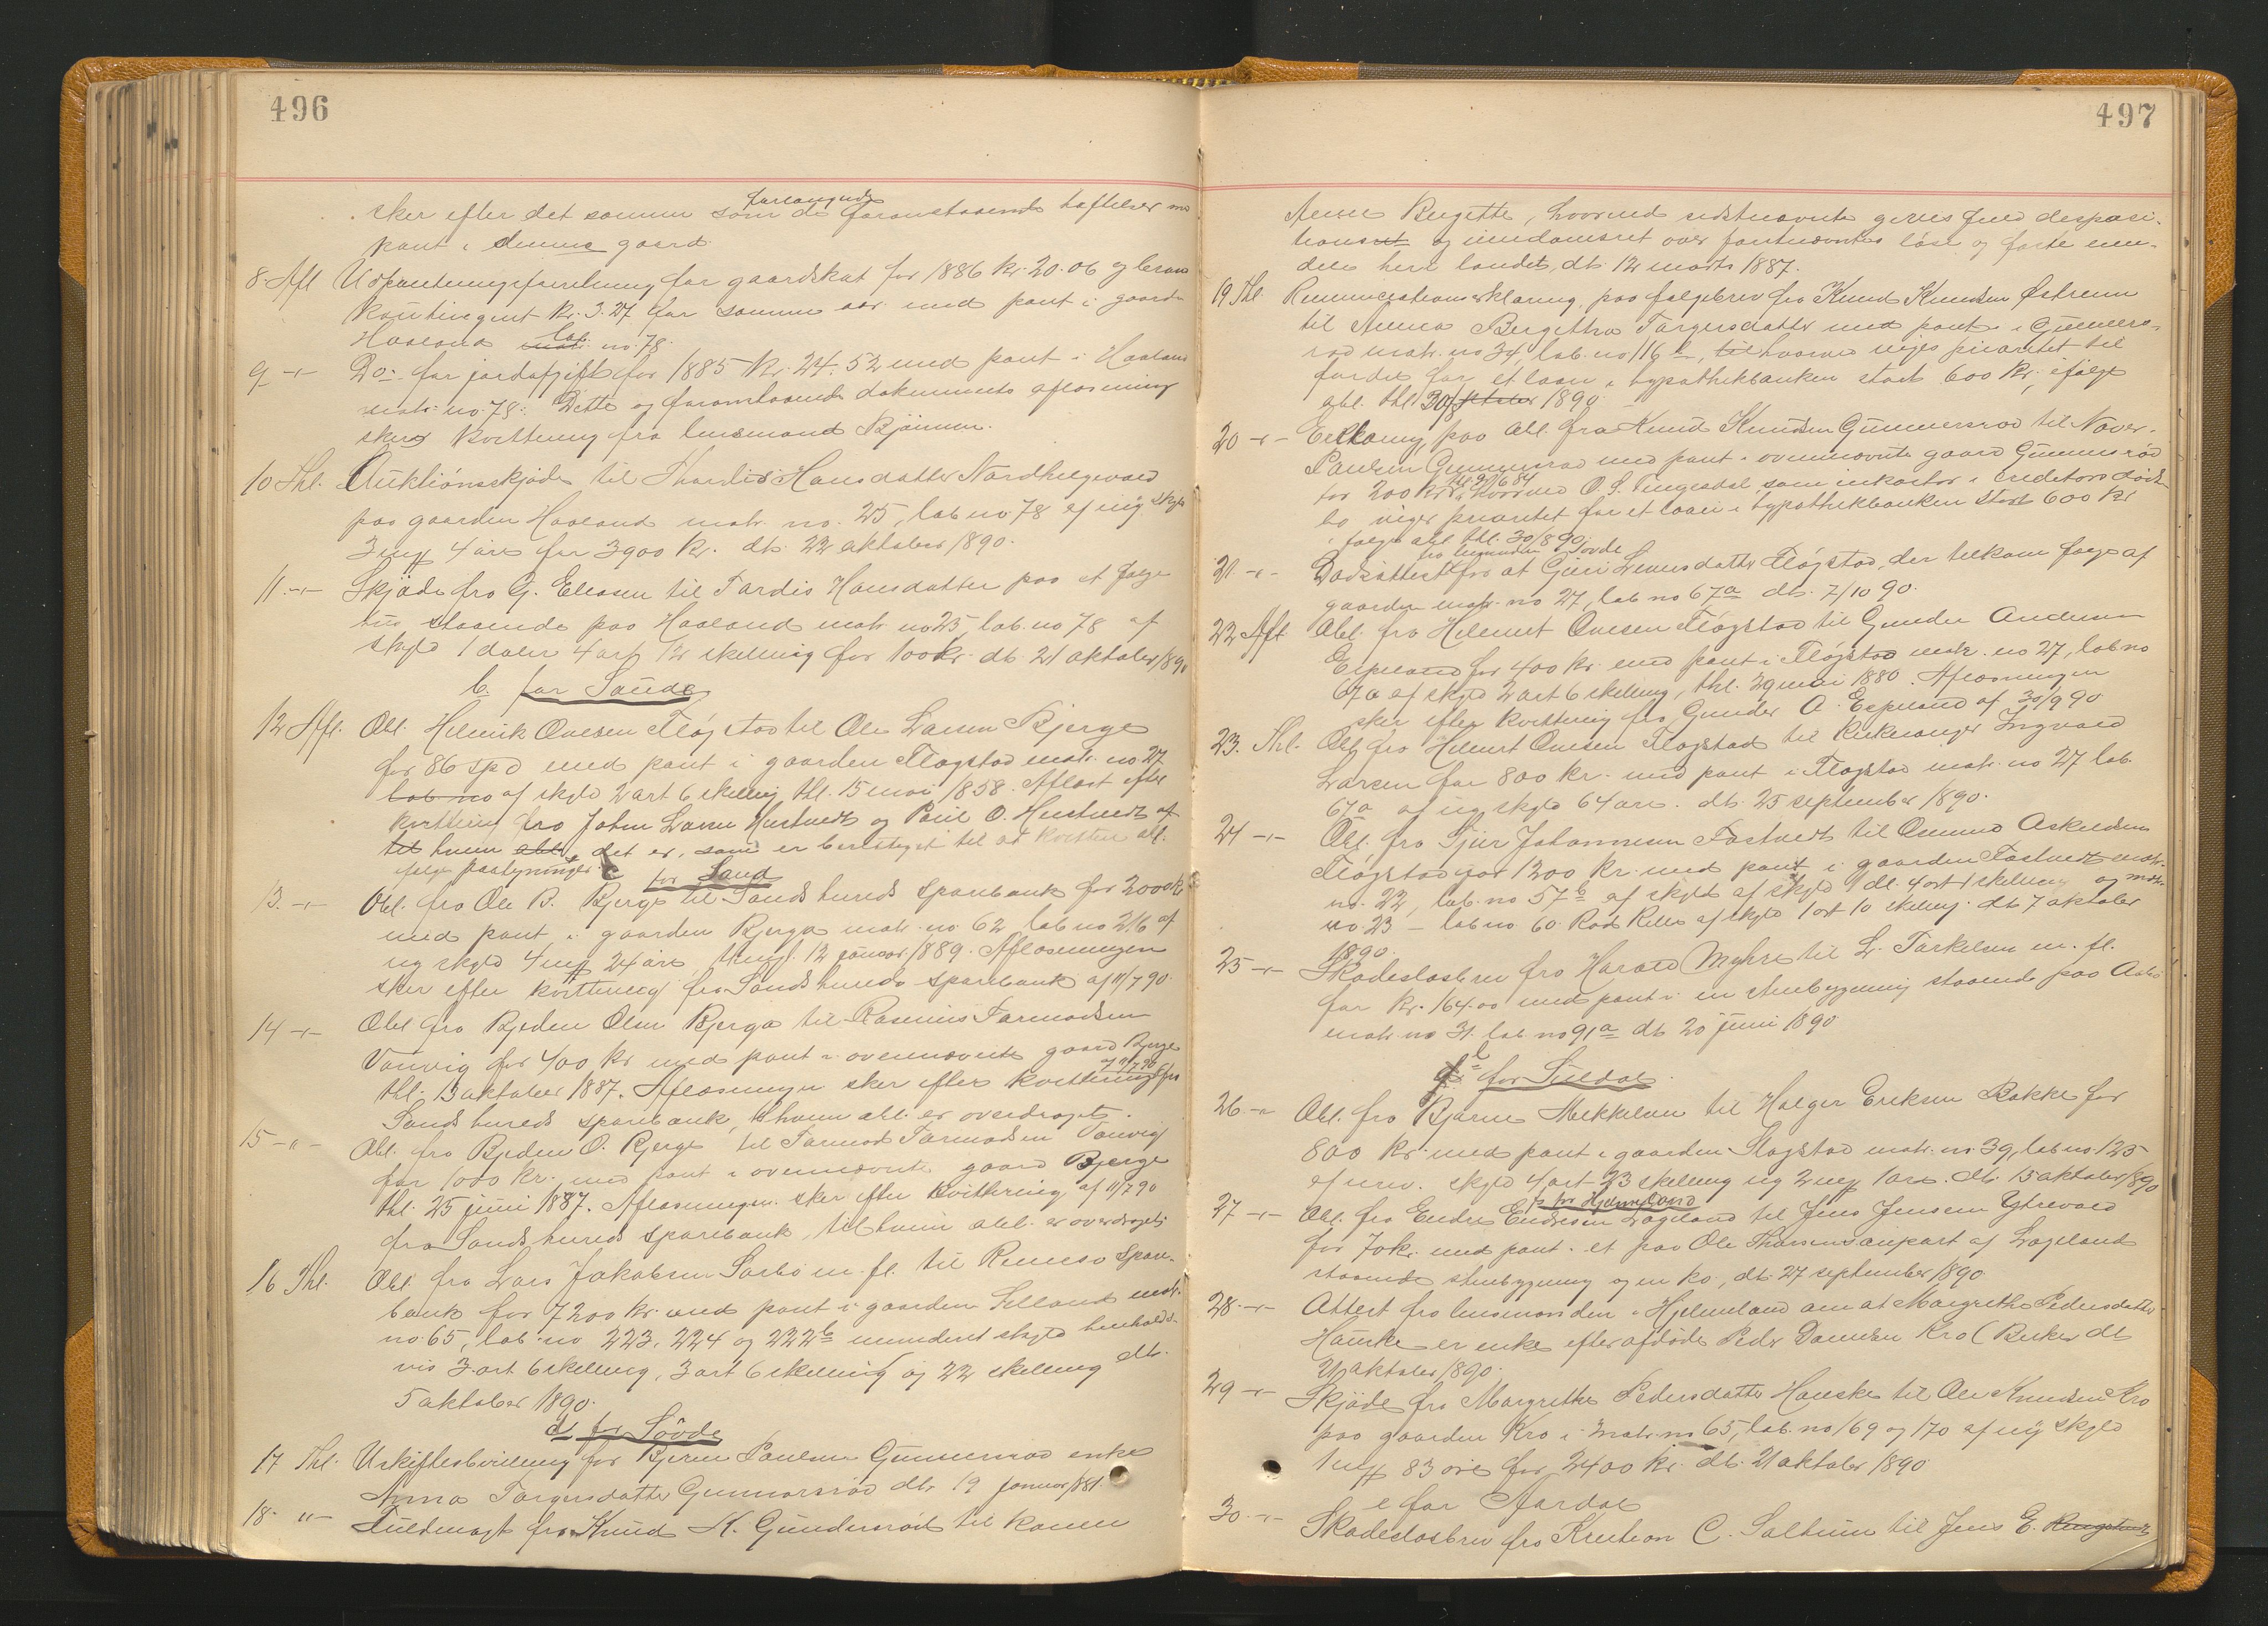 496
sker efter det samme som de foranstaaende hæftelser med
foregaaende
pant i denne gaard.
8. Afl Udpantningsforretning for gaardskat for 1886 kr. 20.06 og brand
kontingent kr. 3.27 for samme aar med pant i gaarden
Haaland matr. lab. no. 78.
9 -"- Do. for jordafgift for 1885 kr. 24.52 med pant i Haaland
matr. no. 78. Dette og foranstaaende dokuments aflæsning
sker kvittering fra lensmand Bjønnen.
10 Thl. Auktionsskjøde til Thardis Hansdatter Nordhelgevaed
paa gaarden Haaland matr. no. 25, lab no 78 af ny skyld
3 mk 4 øre for 3900 kr. dt. 22 oktober 1890.
11. -"- Skjøde fra G. Eleasen til Tardis Hansdatter paa et
hus staaende paa Haaland matr no 25, lab. no 78 af
skyld 1 daler 4 ort 12 skilling for 100 kr. dt. 21 oktober 1890
b. for Saude
12 Afl. Obl. Helmik Ovesen Fløgstad til Ole Larsen Bjerge
for 86 spd med pant i gaarden Fløgstad matr. no 27
lab. no af skyld 2 ort 6 skilling thl. 15 mai 1858. Aflæst efter
kvittering fra John Larsen Hustvedt og Paul O. Hustvedt af
til hvem obl. det er, som er berettiget til at kvittere obl.
ifølge paategninger. c for Sand
13. -"- Obl. fra Ole B. Bjerge til Sands hereds sparebank for 2000 kr
med pant i gaarden Bjerga matr. no 62 lab no 216 af
ny skyld 4 mk 24 øre, thingl. 12 januar 1889. Aflæsningen
sker efter kvittering fra Sands hereds sparebank af 11/7 90.
14 -"- Obl fra Bjeden Olsen Bjerga til Rasmus Tarmodsen
Vanvig for 400 kr med pant i ovennævnte gaard Bjerge
thl. 13 oktober 1887. Aflæsningen sker efter kvittering af 11/7 90 fra
Sands hereds sparebank, til hvem obl. er overdraget.
15 -"- Obl. fra Bjeden O. Bjerge til Tarmod Tarmodsen Vanvig
for 1000 kr. med pant i ovennævnte gaard Bjerge
thl. 25 juni 1887. Aflæsningen sker efter kvittering af 11/7 90
fra Sands hereds sparebank, til hvem obl. er overdraget.
16 Thl. Obl. fra Lars Jakobsen Sarbø m. fl. til Renesø Spare-
bank for 7200 kr. med pant i gaarden Selland matr.
no. 65, lab. no 223, 224 og 222b umyndent skyld henholds-
vis 3 ort 6 skilling, 3 ort 6 skilling og 22 skilling dt.
5 oktober 1890.
d for Søvde
17 Thl. Uskiftesbevilling for Bjørn Paulsen Gunnersrød enke
Anna Targersdatter Gunnarsrød dt. 19 januar 1881.
18. -"- Fuldmagt fra Knud K. Gundersrød til konen
497
Anne Bergette, hvorved sidstnævnte gives fuld desposi-
tionsret og eiendomsret over førstnævntes løse og faste eien-
dele her i landet, dt. 12 marts 1887.
19 Thl. Renunciationserklæring paa følgebrev fra Knud Knudsen Østrem
til Anna Bergitha Targersdatter med pant i Gunners-
rød matr. no 34, lab. no 116b, til hvorved viges prioritet til
fordel for et laan i hypothekbanken stort 600 kr. ifølge
obl. thl 30/8 oktober 1890.
20 -"- Erklæring paa obl. fra Knud Knudsen Gunnersrød til Naver
Paulsen Gunnersrød med pant i ovennævnte gaard Gunnersrød
for 200 kr. hvorved O. S. Tengesdal som inkasator i creditors døds-
bo viger prioritet for et laan i hypothekbanken stort 600 kr
i følge obl thl. 30/8 90.
fra lensmanden i Søvde
21. -"- Dødsattest for at Guri Larsdatter Fløgstad, der tilkom følge af
gaarden matr. no 27, lab no 67a dt. 7/10 90.
22 Aflt Obl. fra Helmet Ovesen Fløgstad til Gunder Andersen
Espeland for 400 kr. med pant i Fløgstad matr. no 27, lab no
67a af skyld 2 ort 6 skilling, thl. 29 mai 1880. Aflæsningen
sker efter kvittering fra Gunder A. Espeland af 30/9 90
23. Thl. Obl. fra Helmet Ovesen Fløgstad til Kirkesanger Ingvald
Larsen for 800 kr. med pant i Fløgstad matr. no 27 lab.
67a af ny skyld 64 øre. dt. 25 september 1890.
24 -"- Obl. fra Sjur Johannesen Fastvedt til Osmund Askildsen
Fløgstad for 1200 kr. med pant i gaarden Fastvedt matr.
no. 22, lab. no 57b af skyld af skyld 1 dl. 4 ort 1 skilling og matr.
no. 23 – lab no 60 Rød af skyld 1 ort 10 skilling. dt 7 oktober
1890.
25 -"- Skadesløsbrev fra Harald Myhre til L. Tarkelsen m. fl.
for kr. 164.00 med pant i en stenbygning staaende paa
matr. no 31. lab no 91a dt 20 juni 1890
e for Suldal.
26 -"- Obl. fra Bjarne Mekkelsen til Holger Eriksen Bakke for
800 kr. med pant i gaarden Slagstad matr. no 39, lab no. 125
af urev. skyld 4 ort 23 skilling ny 2 mk 1 øre. dt. 15 oktober 1890
f. for Hjelmeland
27 -"- Obl. fra Endre Endresen Lageland til Jens Jensen Ytrevaed
for 70 kr. med pant i et paa Ole Thorsens anpart af Lageland
staaende stenbygning og en ko, dt. 27 september 1890.
28. -"- Attest fra lensmanden i Hjelmeland om at Margrethe Pedersdatter
Hauske er enke efter afdøde Peder Danielsen Kro dt
21 oktober 1890.
29 -"- Skjøde fra Margrethe Pedersdatter Hauske til Ole Knudsen Kro
paa gaarden Kro i matr. no 65, lab. no 169 og 170 af ny skyld
1 mk 83 øre for 2400 kr. dt. 21 oktober 1890
e for Aardal
30. -"- Skadesløsbrev fra Kristian C. Saltum til Jens E.